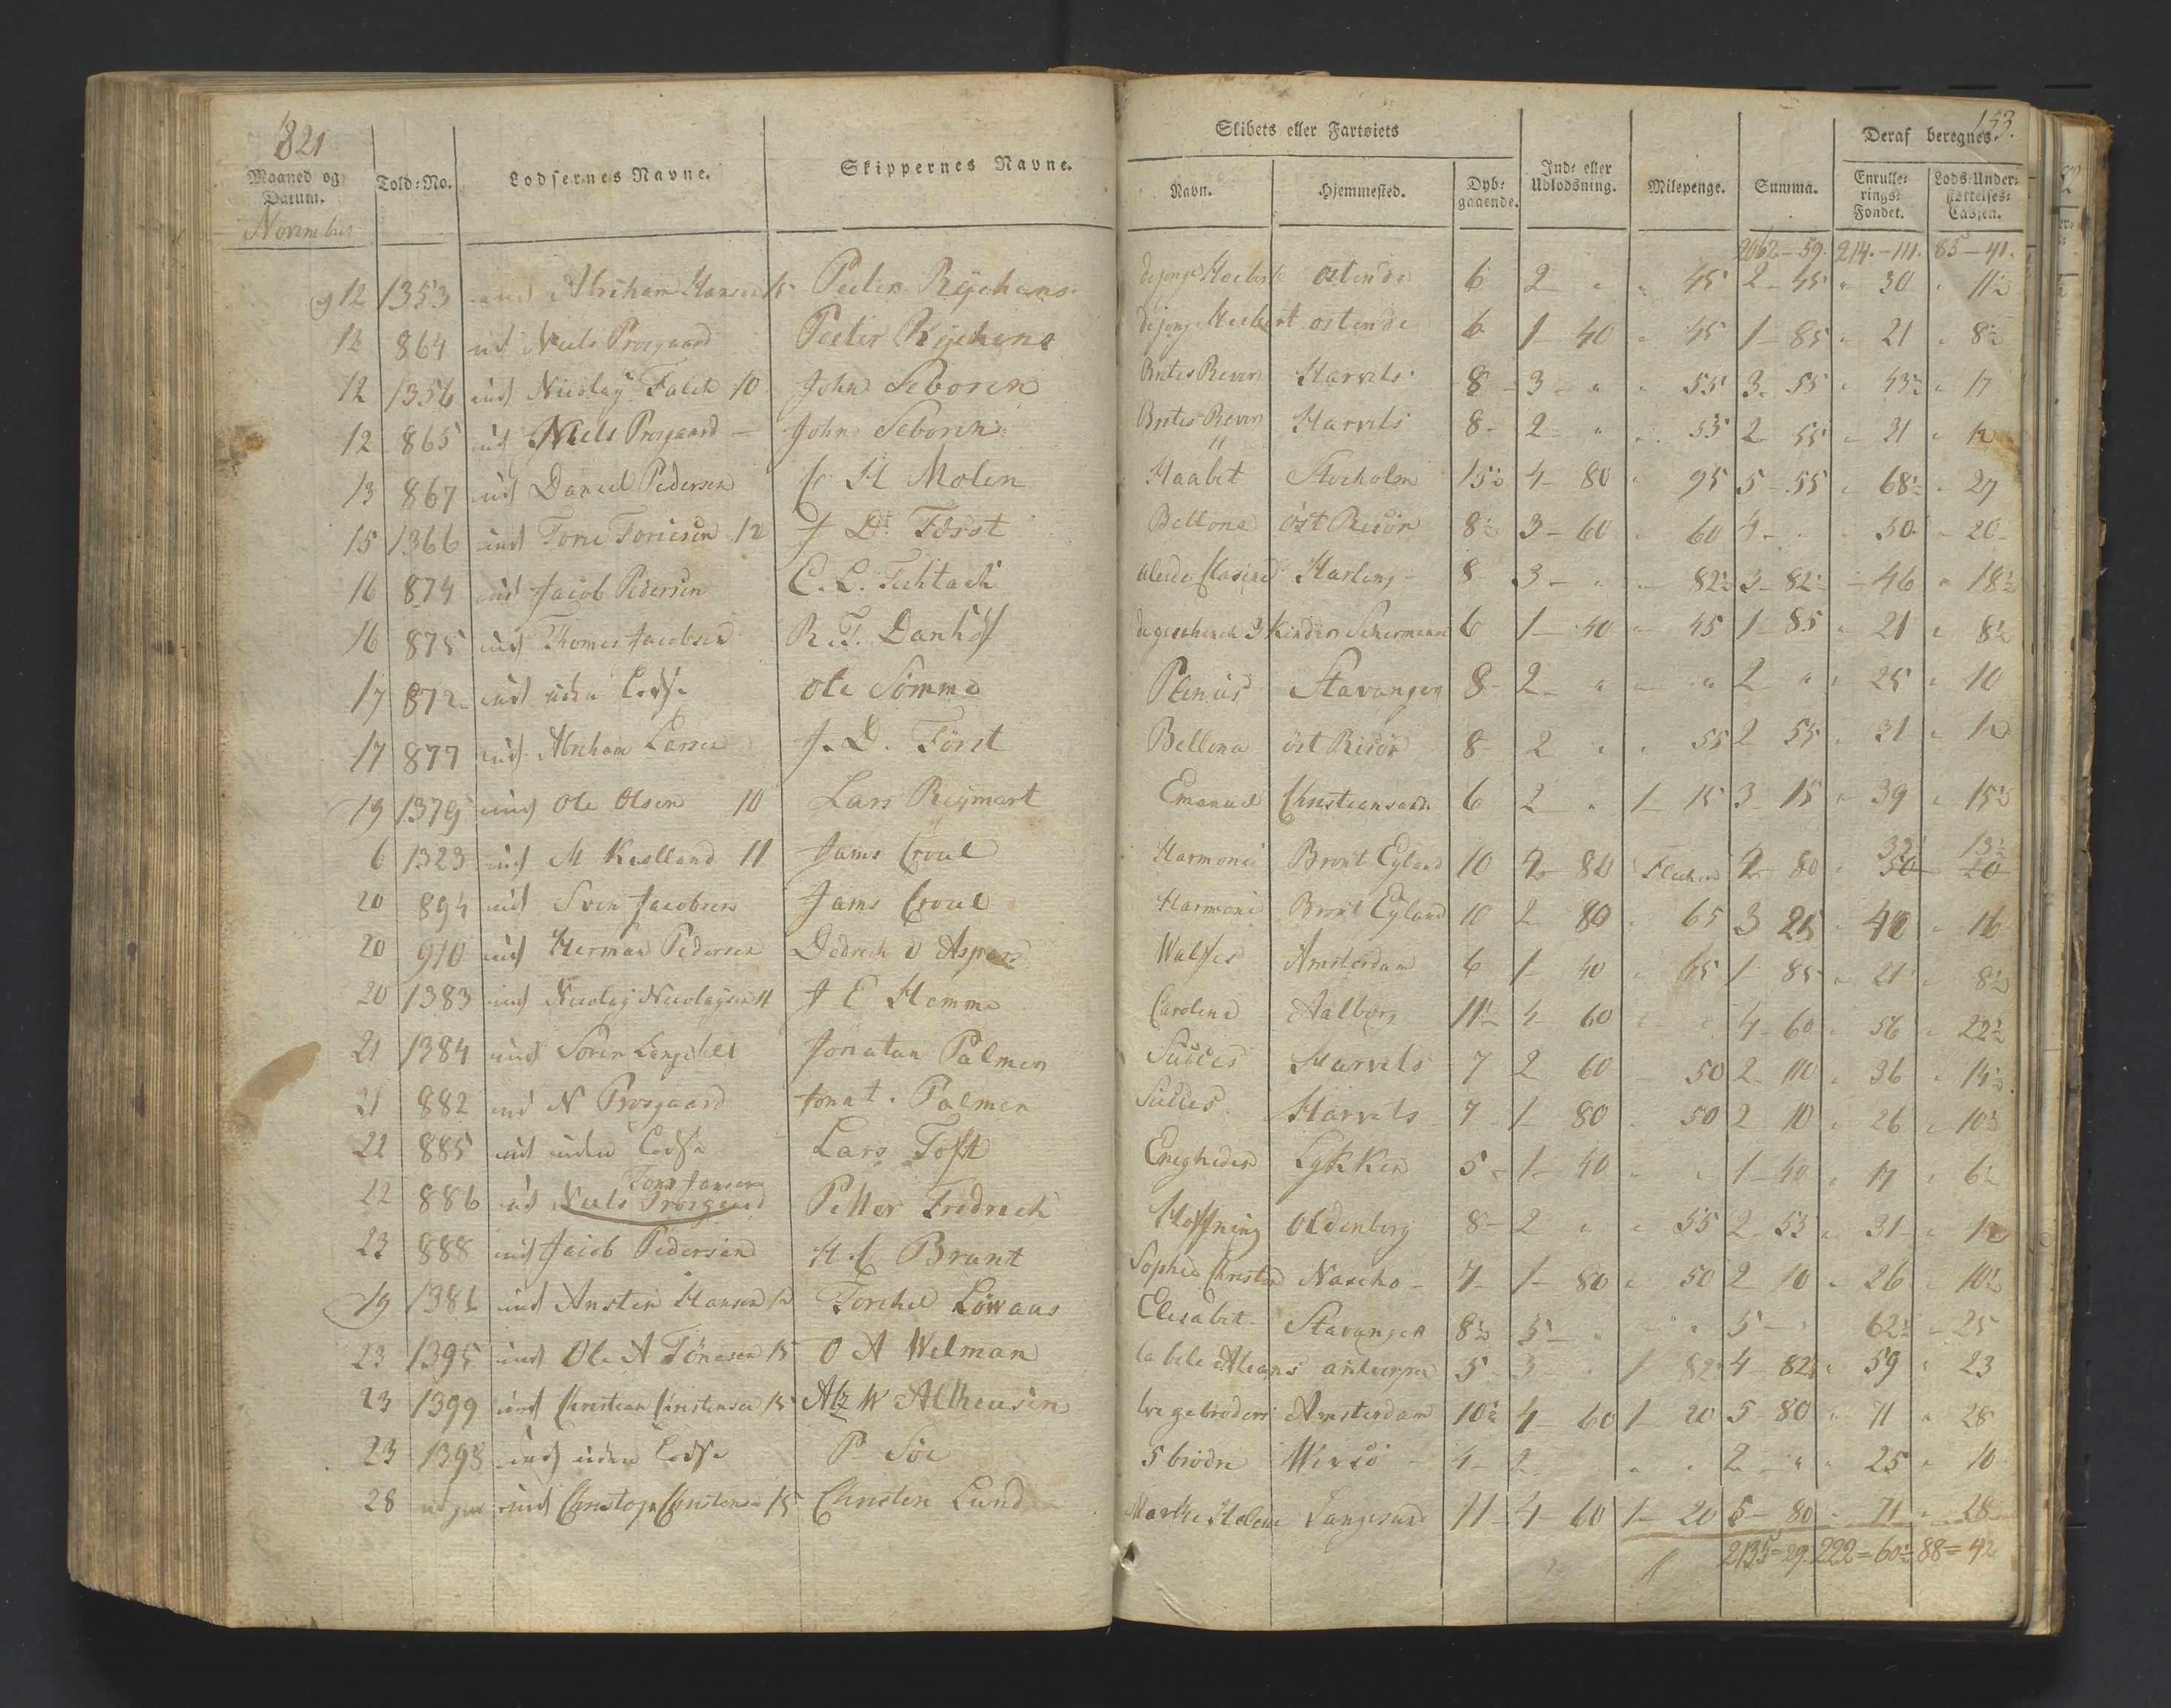 821
153.
Maaned og Datum. Told-No. Lodsernes Navne. Skippernes Navne. Skibets eller Fartøiets Navn. Hjemmested. Dybgaaende. Ind- eller Udlodsning. Milepenge. Summa. Deraf beregnes. Enrullerings-Fondet. Lods-Understøttelses-Cassen.
November
2062-59. 214.-111. 85-41.
12 1353 ind Abriham Hansen 15 Peeter Rÿchens de jonge Heebert ostende 6 2 - " " 45 2-45 " 30 " 11½
12 864 ud Niels Prosgaard Peeter Rÿchens de jonge Heebert ostende 6 1-40 " 45 1-85 " 21 " 8½
12 1356 ind Nicolaÿ Falch 10 John Seboren Harvits 8 3 - " " 55 3-55 " 43½ " 17
12 865 ud Niels Prosgaard John Seboren Harvits 8 - 2 - " 55 2-55 " 31 " 12
13 867 ud Daniel Pedersen C H Molin Haabet Stocholm 15½ 4-80 " 95 5-55 " 68½ " 27
15 1366 ind Tore Toriesen 12 J D Först Bellona öst Risör 8½ 3-60 " 60 4 - " 50 " 20
16 874 ud Jacob Pedersen Harling 8 3 - " 82½ 3-82½ " 46 " 18½
16 875 ud Thomes Jacobsen R. T. Danhof 6 1-40 " 45 1-85 " 21 " 8½
17 872 ud uden Lods Ole Sömme Stavanger 8 - 2 - " " 2 " " 25 " 10
17 877 ud Abriham Larsen J. D. Först Bellona öst Risör 8 - 2 " " 55 2-55 " 31 " 12
19 1379 ind Ole Olsen 10 Lars Reÿmert Emanuel Christiansand 6 2 - " 1-15 3-15 " 39 " 15½
6 1323 ind M Kielland 11 Jams Croul Harmoni Brønt Eyland 10 80 80 13½
20 894 ud Sven Jacobsen Jams Croul Harmoni Brønt Eyland 10 2-80 " 65 3 " 16
20 910 ud Herman Pedersen Amsterdam 6 1-40 " 45 1-85 " 21 " 8½
20 1383 ind Nicolaÿ Nicolaysen 11 J E Hemme Caroline Aalborg 11½ 4-60 " " 4-60 " 56 " 22½
21 1384 ind Jonatan Palmer Succes Harvits 7 2-60 " 50 2-110 " 36 " 14½
21 882 ud N Prosgaard Jonat. Palmer Succes Harvits 7 1-80 " 50 2-10 " 26 " 10½
22 885 ud uden Lods Lars Toft Enigheden Lykken 5 - 1-40 " " 1-40 " 17 " 6½
22 886 ud Niels Prosgaard Tore Jansen Petter Fredrech Hoffning Oldenborg 8 - 2 " " 55 2-55 " 31 " 12
23 888 ud Jacob Pedersen H. C Brant Sophie 7 - 1-80 " 50 2-10 " 26 " 10½
19 1381 ind Ansten Hansen 12 Torchel Elisabet Stavanger 8½ 5 - " " 5 - " 62½ " 25
23 1395 ind Ole A Tönesen 15 O A Welman la bele Aleans anteerpen 5 - 3 - " 1-82 4-82 " 59 " 23
23 1399 ind Christian Christensen 15 Alz W Altheusen gebroders Amsterdam 10½ 4-60 1-20 5-80 " 71 " 28
23 1398 ind uden Lods P Söe 5 brödre 4 - 2 - " " 2 - " " 25 " 10
28 ind Christoph Christensen 15 Christen Lund Marthe Helene Langesund 11 - 4-60 1-20 5-80 " 71 " 28
2135=29. 222=60½ 88=42